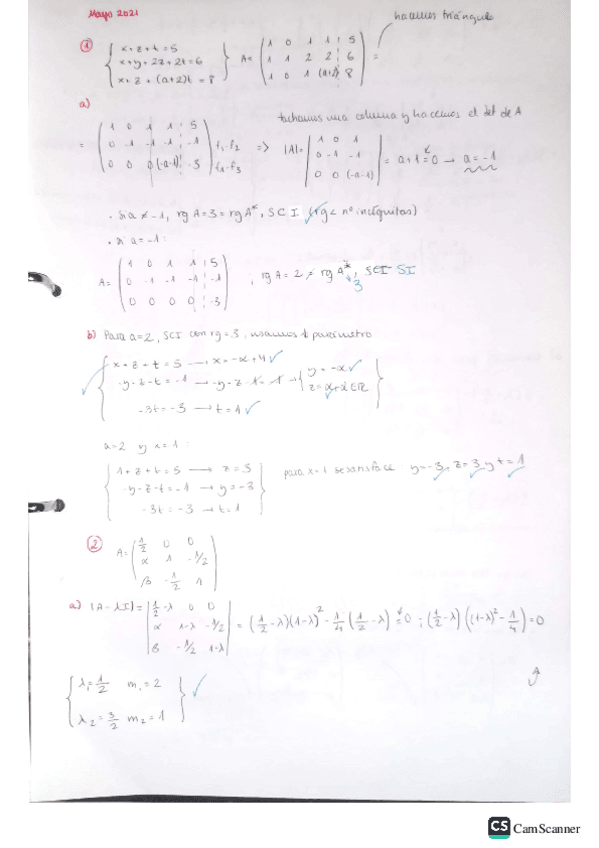 Mayo 2021
hacemos triángulo
① { x+z+t=5
x+y+2z+2t=6
x+z+(a+2)t=8 }
A= ( 1 0 1 1 | 5
1 1 2 2 | 6
1 0 1 (a+2) | 8 ) =
a)
tachamos una columna y hacemos el det de A
= ( 1 0 1 1 | 5
0 -1 -1 -1 | -1
0 0 0 (-a-1) | -3 ) f1-f2 f1-f3
=> |A|= | 1 0 1
0 -1 -1
0 0 (-a-1) | = a+1=0 → a=-1
· Si a ≠ -1, rg A=3=rg A*, SCI (rg < nº incógnitas)
· si a=-1:
A= ( 1 0 1 1 | 5
0 -1 -1 -1 | -1
0 0 0 0 | -3 ) , rg A=2 ≠ rg A*, SCI SI
3
b) Para a=2, SCI con rg=3, usamos 1 parámetro
{ x+z+t=5 → x=-α+4 ✓
-y-z-t=-1 → -y-z-1=-1 → { y=-α ✓
z=α, α∈R }
-3t=-3 → t=1 ✓
a=2 y x=1:
{ 1+z+t=5 → z=3
-y-z-t=-1 → y=-3
-3t=-3 → t=1 }
para x=1 se satisface y=-3, z=3 y t=1
② A= ( 1/2 0 0
α 1 -1/2
β -1/2 1 )
a) |A-λI|= | 1/2-λ 0 0
α 1-λ -1/2
β -1/2 1-λ | = (1/2-λ)(1-λ)² - 1/4(1/2-λ) = 0 ; (1/2-λ)((1-λ)²-1/4)=0
{ λ₁=1/2 m₁=2
λ₂=3/2 m₂=1 } ✓
CS CamScanner